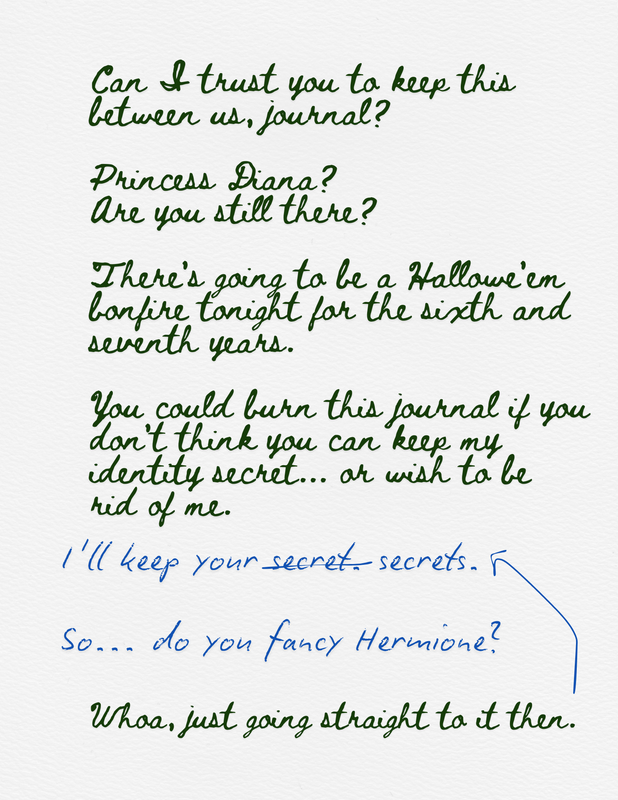 Can I trust you to keep this
between us, journal?
Princess Diana?
Are you still there?
There's going to be a Hallowe'em
bonfire tonight for the sixth and
seventh years.
You could burn this journal if you
don't think you can keep my
identity secret... or wish to be
rid of me.
I'll keep your secret. secrets.
So... do you fancy Hermione?
Whoa, just going straight to it then.